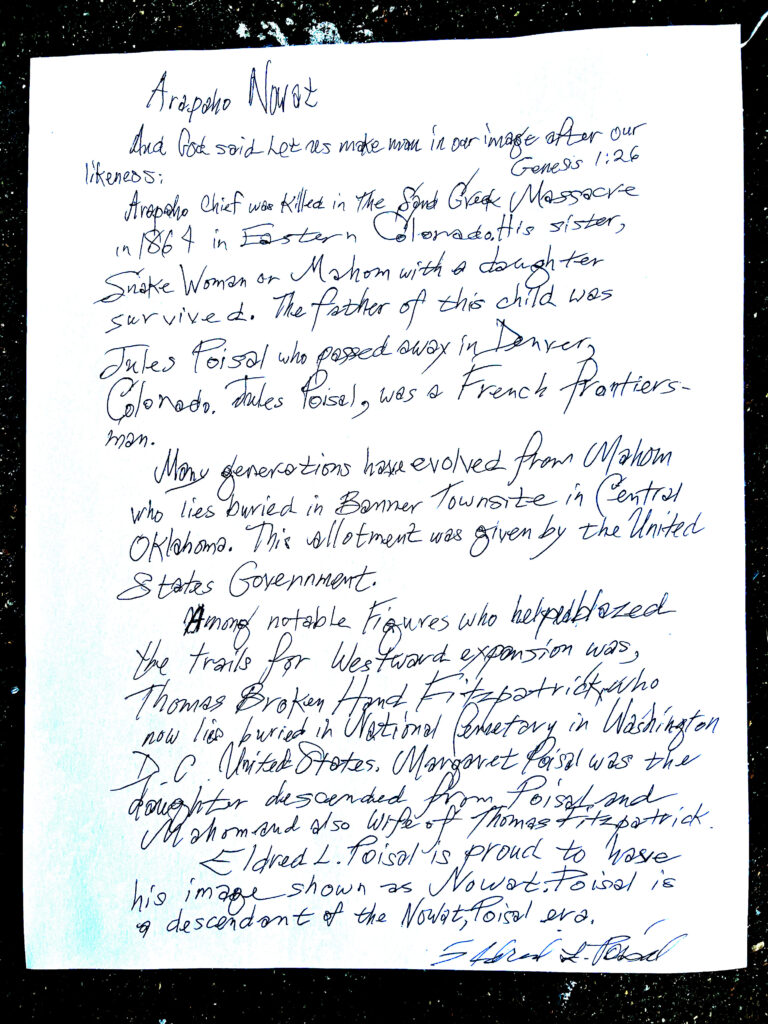 Arapaho Nowat
And God said Let us make man in our image after our
likeness: Genesis 1:26
Arapaho Chief was killed in the Sand Creek Massacre
in 1864 in Eastern Colorado. His sister,
Snake Woman or Mahom with a daughter
survived. The father of this child was
Jules Poisal who passed away in Denver,
Colorado. Jules Poisal, was a French frontiers-
man.
Many generations have evolved from Mahom
who lies buried in Banner Townsite in Central
Oklahoma. This allotment was given by the United
States Government.
Among notable Figures who helped blazed
the trails for Westward expansion was,
Thomas Broken Hand Fitzpatrick, who
now lies buried in National Cemetary in Washington
D.C. United States. Margaret Poisal was the
daughter descended from Poisal and
Mahom and also wife of Thomas Fitzpatrick.
Eldred L. Poisal is proud to have
his image shown as Nowat. Poisal is
a descendant of the Nowat, Poisal era.
Eldred L. Poisal